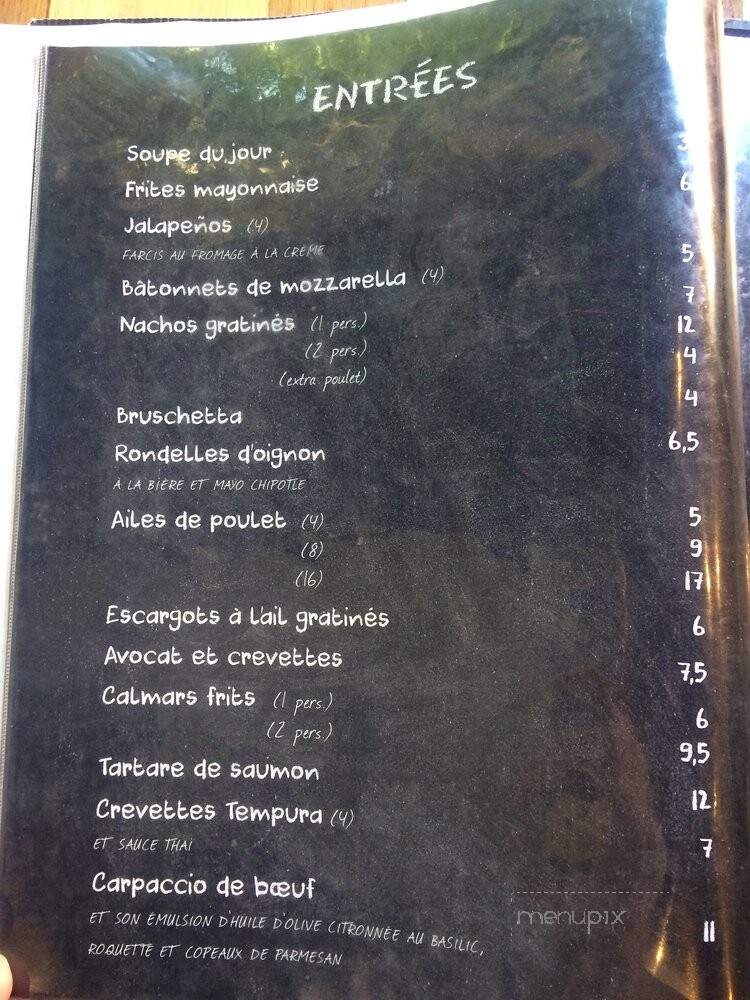 ENTRÉES
Soupe du jour
Frites mayonnaise
Jalapeños (4) 6
FARCIS AU FROMAGE À LA CRÈME
Bâtonnets de mozzarella (4) 5
Nachos gratinés (1 pers.) 7
(2 pers.) 12
(extra poulet) 4
Bruschetta 4
Rondelles d'oignon 6,5
À LA BIÈRE ET MAYO CHIPOTLE
Ailes de poulet (4) 5
(8) 9
(16) 17
Escargots à l'ail gratinés 6
Avocat et crevettes 7,5
Calmars frits (1 pers.) 6
(2 pers.) 9,5
Tartare de saumon 12
Crevettes Tempura (4) 7
ET SAUCE THAÏ
Carpaccio de bœuf 11
ET SON ÉMULSION D'HUILE D'OLIVE CITRONNÉE AU BASILIC,
ROQUETTE ET COPEAUX DE PARMESAN
menupix